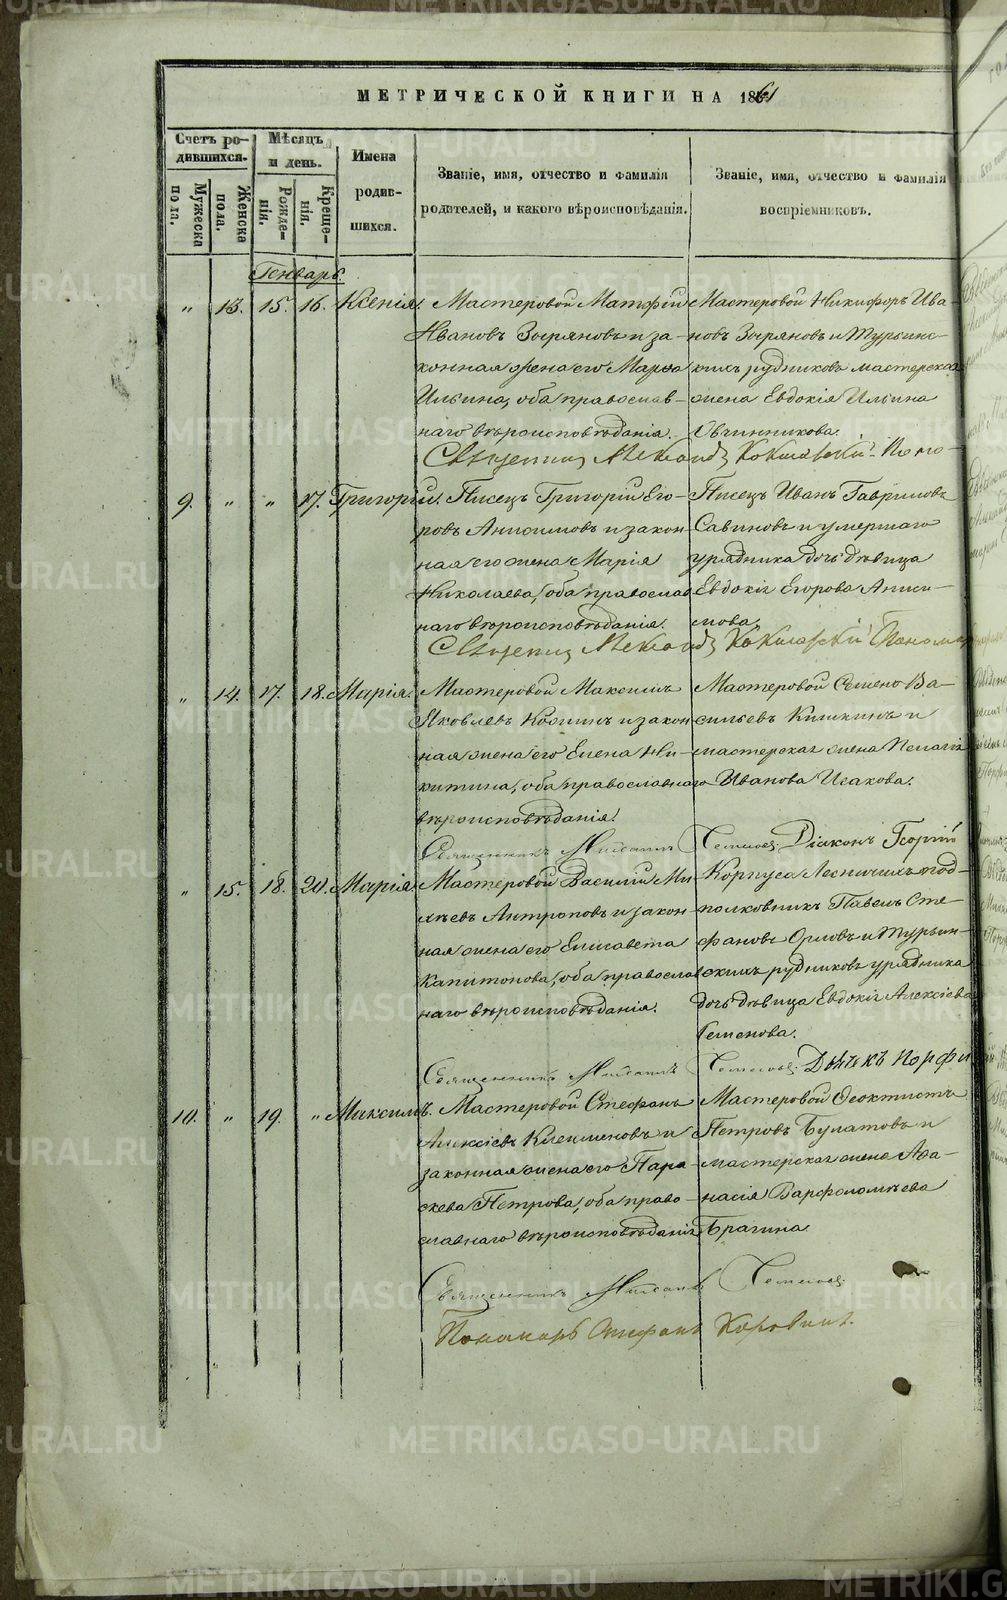 METRIKI.GASO-URAL.RU
МЕТРИЧЕСКОЙ КНИГИ НА 1861
Счетъ родившихся.
Мѣсяцъ и день.
Имена родившихся.
Званіе, имя, отчество и фамилія родителей, и какого вѣроисповѣданія.
Званіе, имя, отчество и фамилія воспріемниковъ.
Мужеска пола.
Женска пола.
Рожденія.
Крещенія.
Генварь.
" 13. 15. 16. Ксенія.
Мастеровой Матфій
Ивановъ Зыряновъ и за-
конная жена его Марѳа
Ильина, оба православ-
наго вѣроисповѣданія.
Мастеровой Никифоръ Ива-
новъ Зыряновъ и Турьинс-
кихъ рудниковъ мастерская
жена Евдокія Ильина
Овчинникова.
9. " " 17. Григорій.
Писецъ Григорій Его-
ровъ Анисимовъ и закон-
ная его жена Марія
Николаева, оба православ
наго вѣроисповѣданія.
Писецъ Иванъ Гавриловъ
Савиновъ и умершаго
урядника дочь дѣвица
Евдокія Егорова Аниси-
мова.
" 14. 17. 18. Марія.
Мастеровой Максимъ
Яковлевъ и закон
ная жена его Елена Ни-
китина, оба православнаго
вѣроисповѣданія.
Мастеровой Семенъ Ва-
сильевъ Кишкинъ и
мастерская жена Пелагія
Иванова Исакова.
Священникъ Діаконъ Георгій
" 15. 18. 20. Марія
Мастеровой Василій Ми
хѣевъ Антроповъ и закон-
ная жена его Елисавета
Капитонова, оба православ
наго вѣроисповѣданія.
Корпуса Лесничихъ под-
полковникъ Павелъ Сте-
фановъ Орловъ и Турьин-
скихъ рудниковъ урядника
дочь дѣвица Евдокія Алексіева
Семенова.
Священникъ Дьячекъ Порфи
10. " 19. " Максимъ.
Мастеровой Стефанъ
Алексіевъ Клеименовъ и
законная жена его Пара-
скева Петрова, оба право-
славнаго вѣроисповѣданія
Мастеровой Ѳеоктистъ
Петровъ Булатовъ и
мастерская жена Аѳа-
насія Варфоломѣева
Брагина
Священникъ
Пономарь Стефанъ Коровинъ.